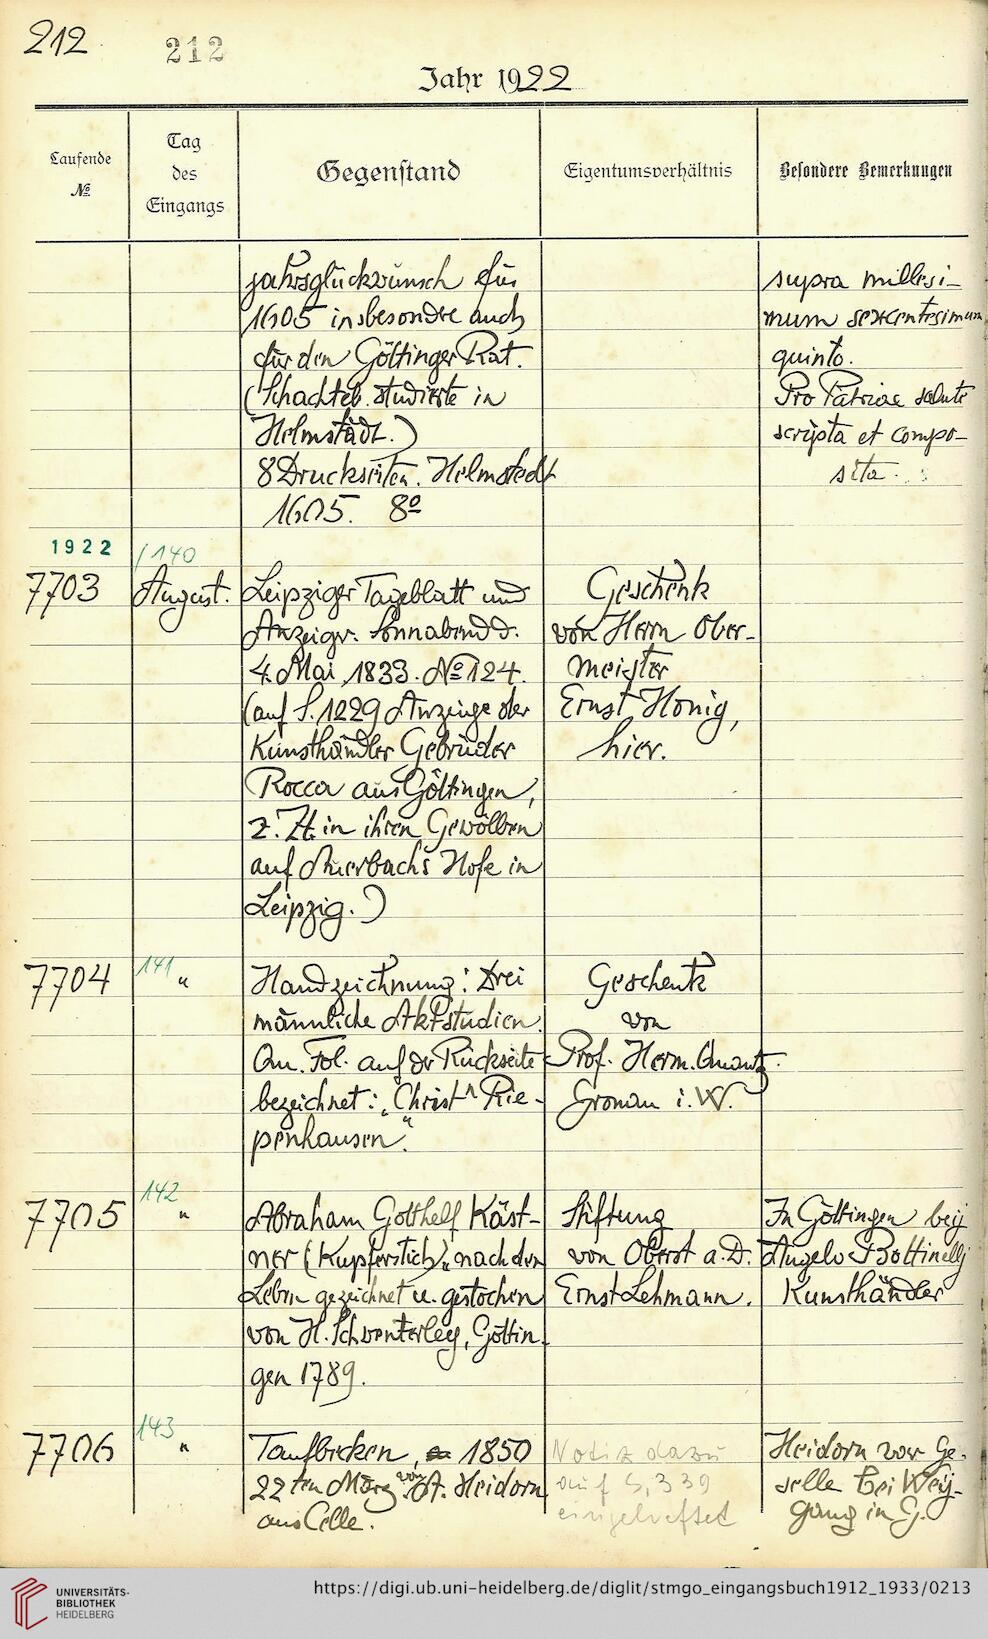 212
212
Jahr 1922
Laufende
№
Tag
des
Eingangs
Gegenstand
Eigentumsverhältnis
Besondere Bemerkungen
jahrsglückwunsch für
1605 insbesondre auch
für den Göttinger Rat.
(Schachteb. studierte in
Helmstädt.)
8 Druckseiten. Helmstedt
1605. 8º
supra millesi-
mum sexcentesimum
quinto.
Pro Patriae salute
scripta et compo-
sita.
1922
/140
7703
August.
Leipziger Tageblatt und
Anzeiger. Sonnabend d.
4. Mai 1833. № 124.
(auf S. 1229 Anzeige der
Kunsthändler Gebrüder
Rocca aus Göttingen,
z. Zt. in ihren Gewölben
auf Auerbachs Hofe in
Leipzig.)
Geschenk
von Herrn Ober-
meister
Ernst Honig,
hier.
7704
141
"
Handzeichnung: Drei
männliche Aktstudien.
Qu. Fol. auf der Rückseite
bezeichnet: „Christn Rie-
penhausen“.
Geschenk
von
Prof. Herm. Quantz.
Gronau i. W.
7705
142
"
Abraham Gotthelf Käst-
ner (Kupferstich) „nach dem
Leben gezeichnet u. gestochen
von H. Schwenterley, Göttin-
gen 1789.
Stiftung
von Oberst a. D.
Ernst Lehmann.
In Göttingen beÿ
Angelo Bottinelly
Kunsthändler
7706
143
"
Taufbecken, 1850
22ten März von A. Heidorn
aus Celle.
Notiz dazu
auf S. 339
eingeheftet
Heidorn war Ge-
selle bei Wey-
gang in G.
UNIVERSITÄTS-
BIBLIOTHEK
HEIDELBERG
https://digi.ub.uni-heidelberg.de/diglit/stmgo_eingangsbuch1912_1933/0213